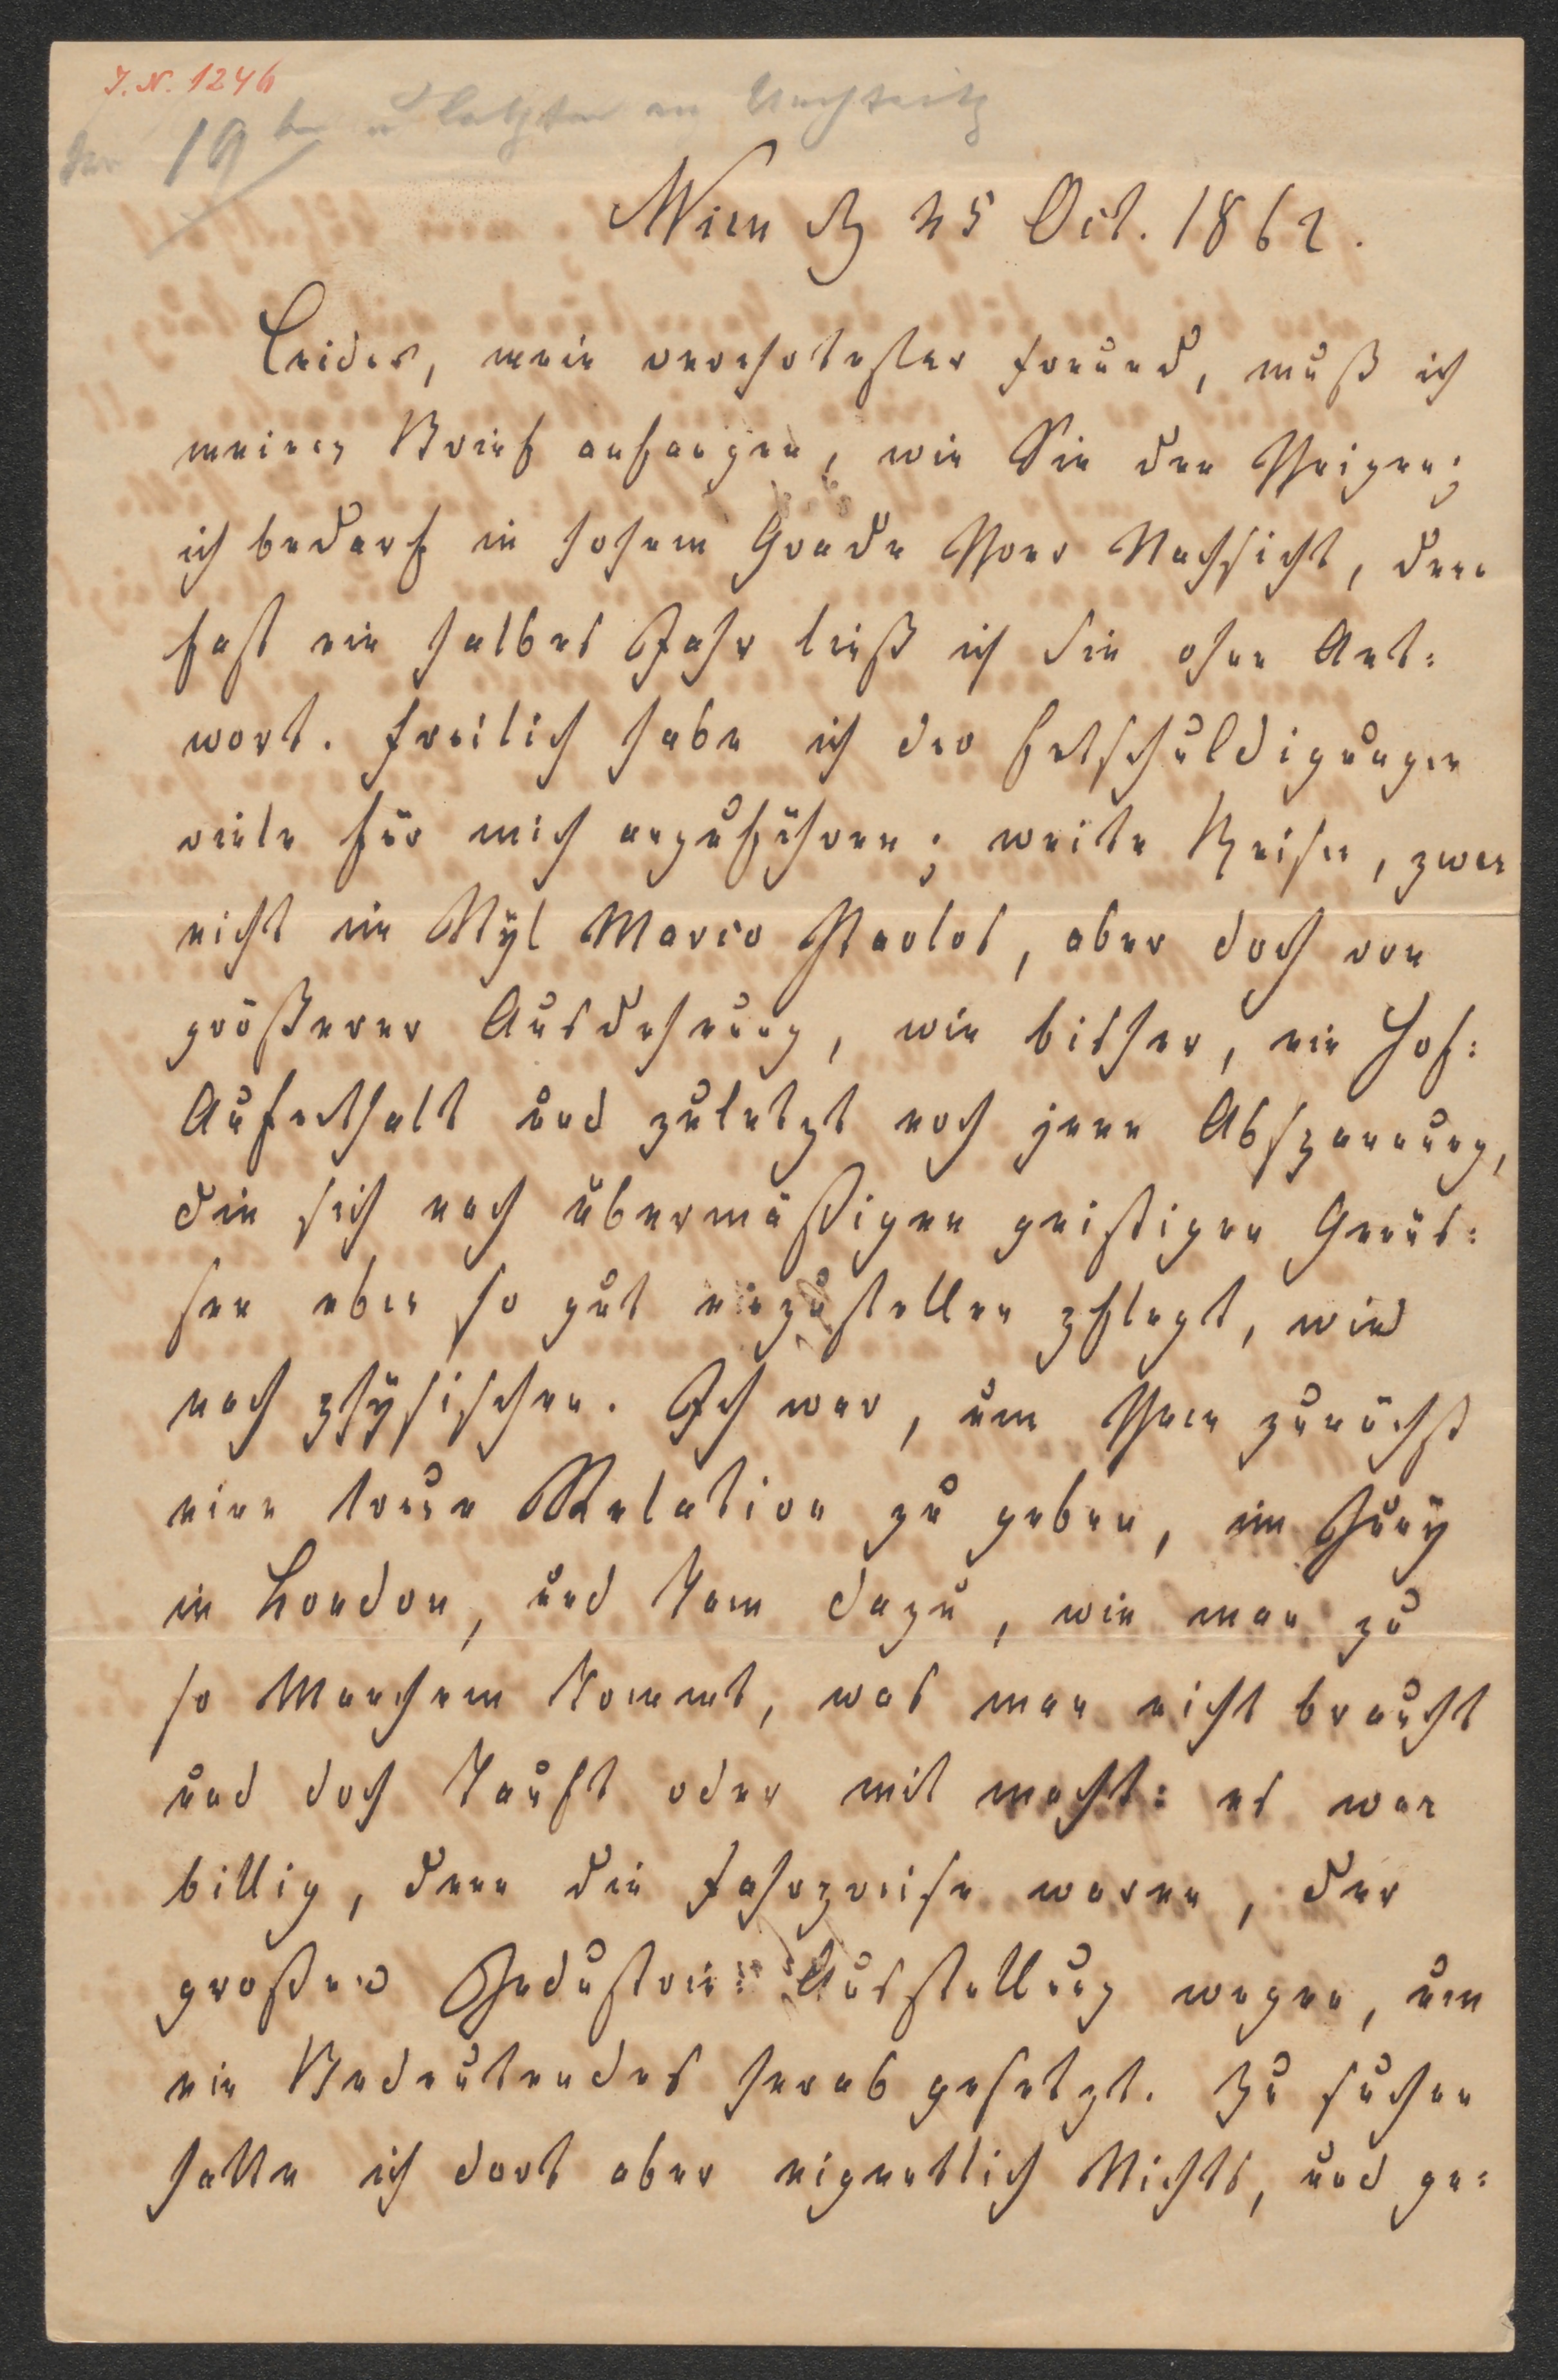 J. N. 1246
19
Wien d 25 Oct. 1862.
Leider, mein verehrtester Freund, muß ich
meinen Brief anfangen, wie Sie den Ihrigen;
ich bedarf in hohem Grade Ihrer Nachsicht, denn
fast ein halbes Jahr ließ ich Sie ohne Ant:
wort. Freilich habe ich der Entschuldigungen
viele für mich anzuführen; weite Reisen, zwar
nicht im Styl Marco Paolos, aber doch von
größerer Ausdehnung, wie bisher, ein Hof:
Aufenthalt und zuletzt noch jene Abspannung,
die sich nach übermäßigen geistigen Genüs:
sen eben so gut einzustellen pflegt, wie
nach physischen. Ich war, um Ihnen zunächst
eine treue Relation zu geben, im Juny
in London, und kam dazu, wie man zu
so Manchem kommt, was man nicht braucht
und doch kauft oder mit macht: es war
billig, denn die Fahrpreise waren, der
großen Industrie: Ausstellung wegen, um
ein Bedeutendes herab gesetzt. Zu suchen
hatte ich dort aber eigentlich Nichts, und ge: